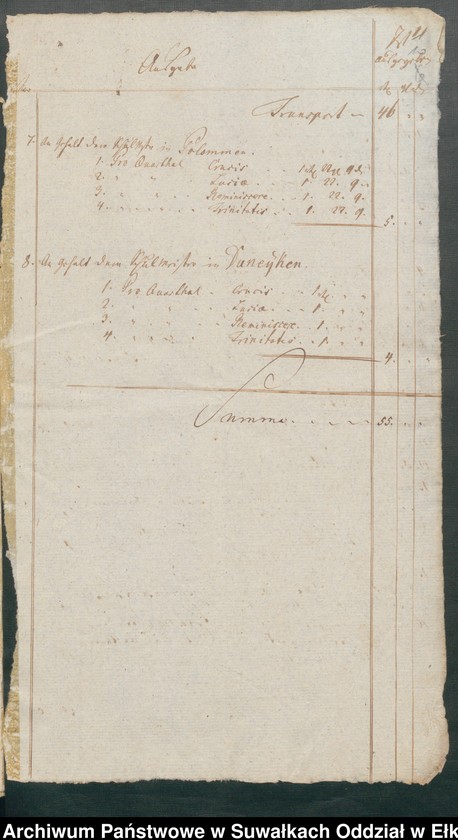 Ausgabe
Transport 46
7. An Gehalt dem Schulmstr in Polommen.
1. Pro Quarthal Crucis 1 22 9
2. " " Luciæ 1. 22. 9.
3. " " Reminiscere 1. 22. 9.
4. " " Trinitatis 1. 22. 9.
5.
8. An Gehalt dem Schulmeister in Duneyken.
1. Pro Quarthal Crucis 1
2. " " Luciæ 1.
3. " " Reminiscere 1.
4. " " Trinitatis 1.
4.
Summa. 55.
Archiwum Państwowe w Suwałkach Oddział w Ełk